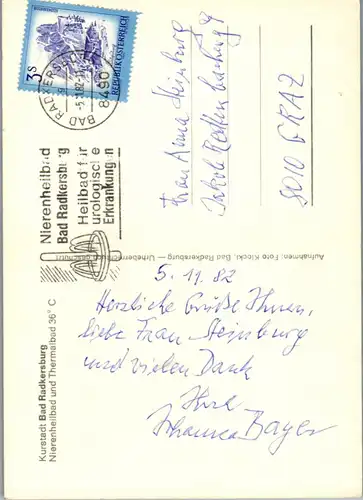 3 S
REPUBLIK ÖSTERREICH
8490 BAD RADKERSBURG
-5.11.82
Nierenheilbad
Bad Radkersburg
Heilbad für
urologische
Erkrankungen
Frau Anna Steinburg
8010 GRAZ
Aufnahmen: Foto Kleckl, Bad Radkersburg — Urheberrechtlich geschützt
Kurstadt Bad Radkersburg
Nierenheilbad und Thermalbad 36° C
5. 11. 82
Herzliche Grüße Ihnen,
liebe Frau Steinburg
und vielen Dank
Ihre
Johanna Bayer